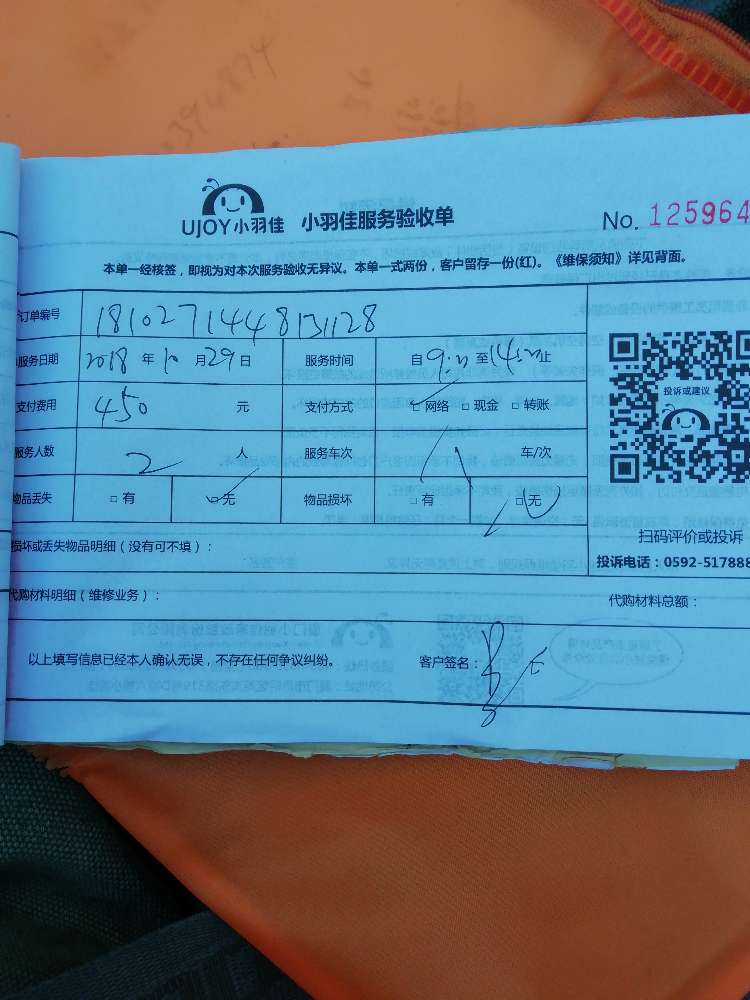 UJOY小羽佳 小羽佳服务验收单 No. 125964
本单一经核签，即视为对本次服务验收无异议。本单一式两份，客户留存一份(红)。《维保须知》详见背面。
订单编号 1810271448131128
服务日期 2018 年 10 月 29 日 服务时间 自 9:00 至 14:00 止
支付费用 450 元 支付方式 □ 网络 □ 现金 □ 转账
服务人数 2 人 服务车次 车/次
物品丢失 □ 有 □ 无 物品损坏 □ 有 □ 无
投诉或建议
扫码评价或投诉
投诉电话：0592-517888
损坏或丢失物品明细（没有可不填）：
代购材料明细（维修业务）： 代购材料总额：
以上填写信息已经本人确认无误，不存在任何争议纠纷。 客户签名：